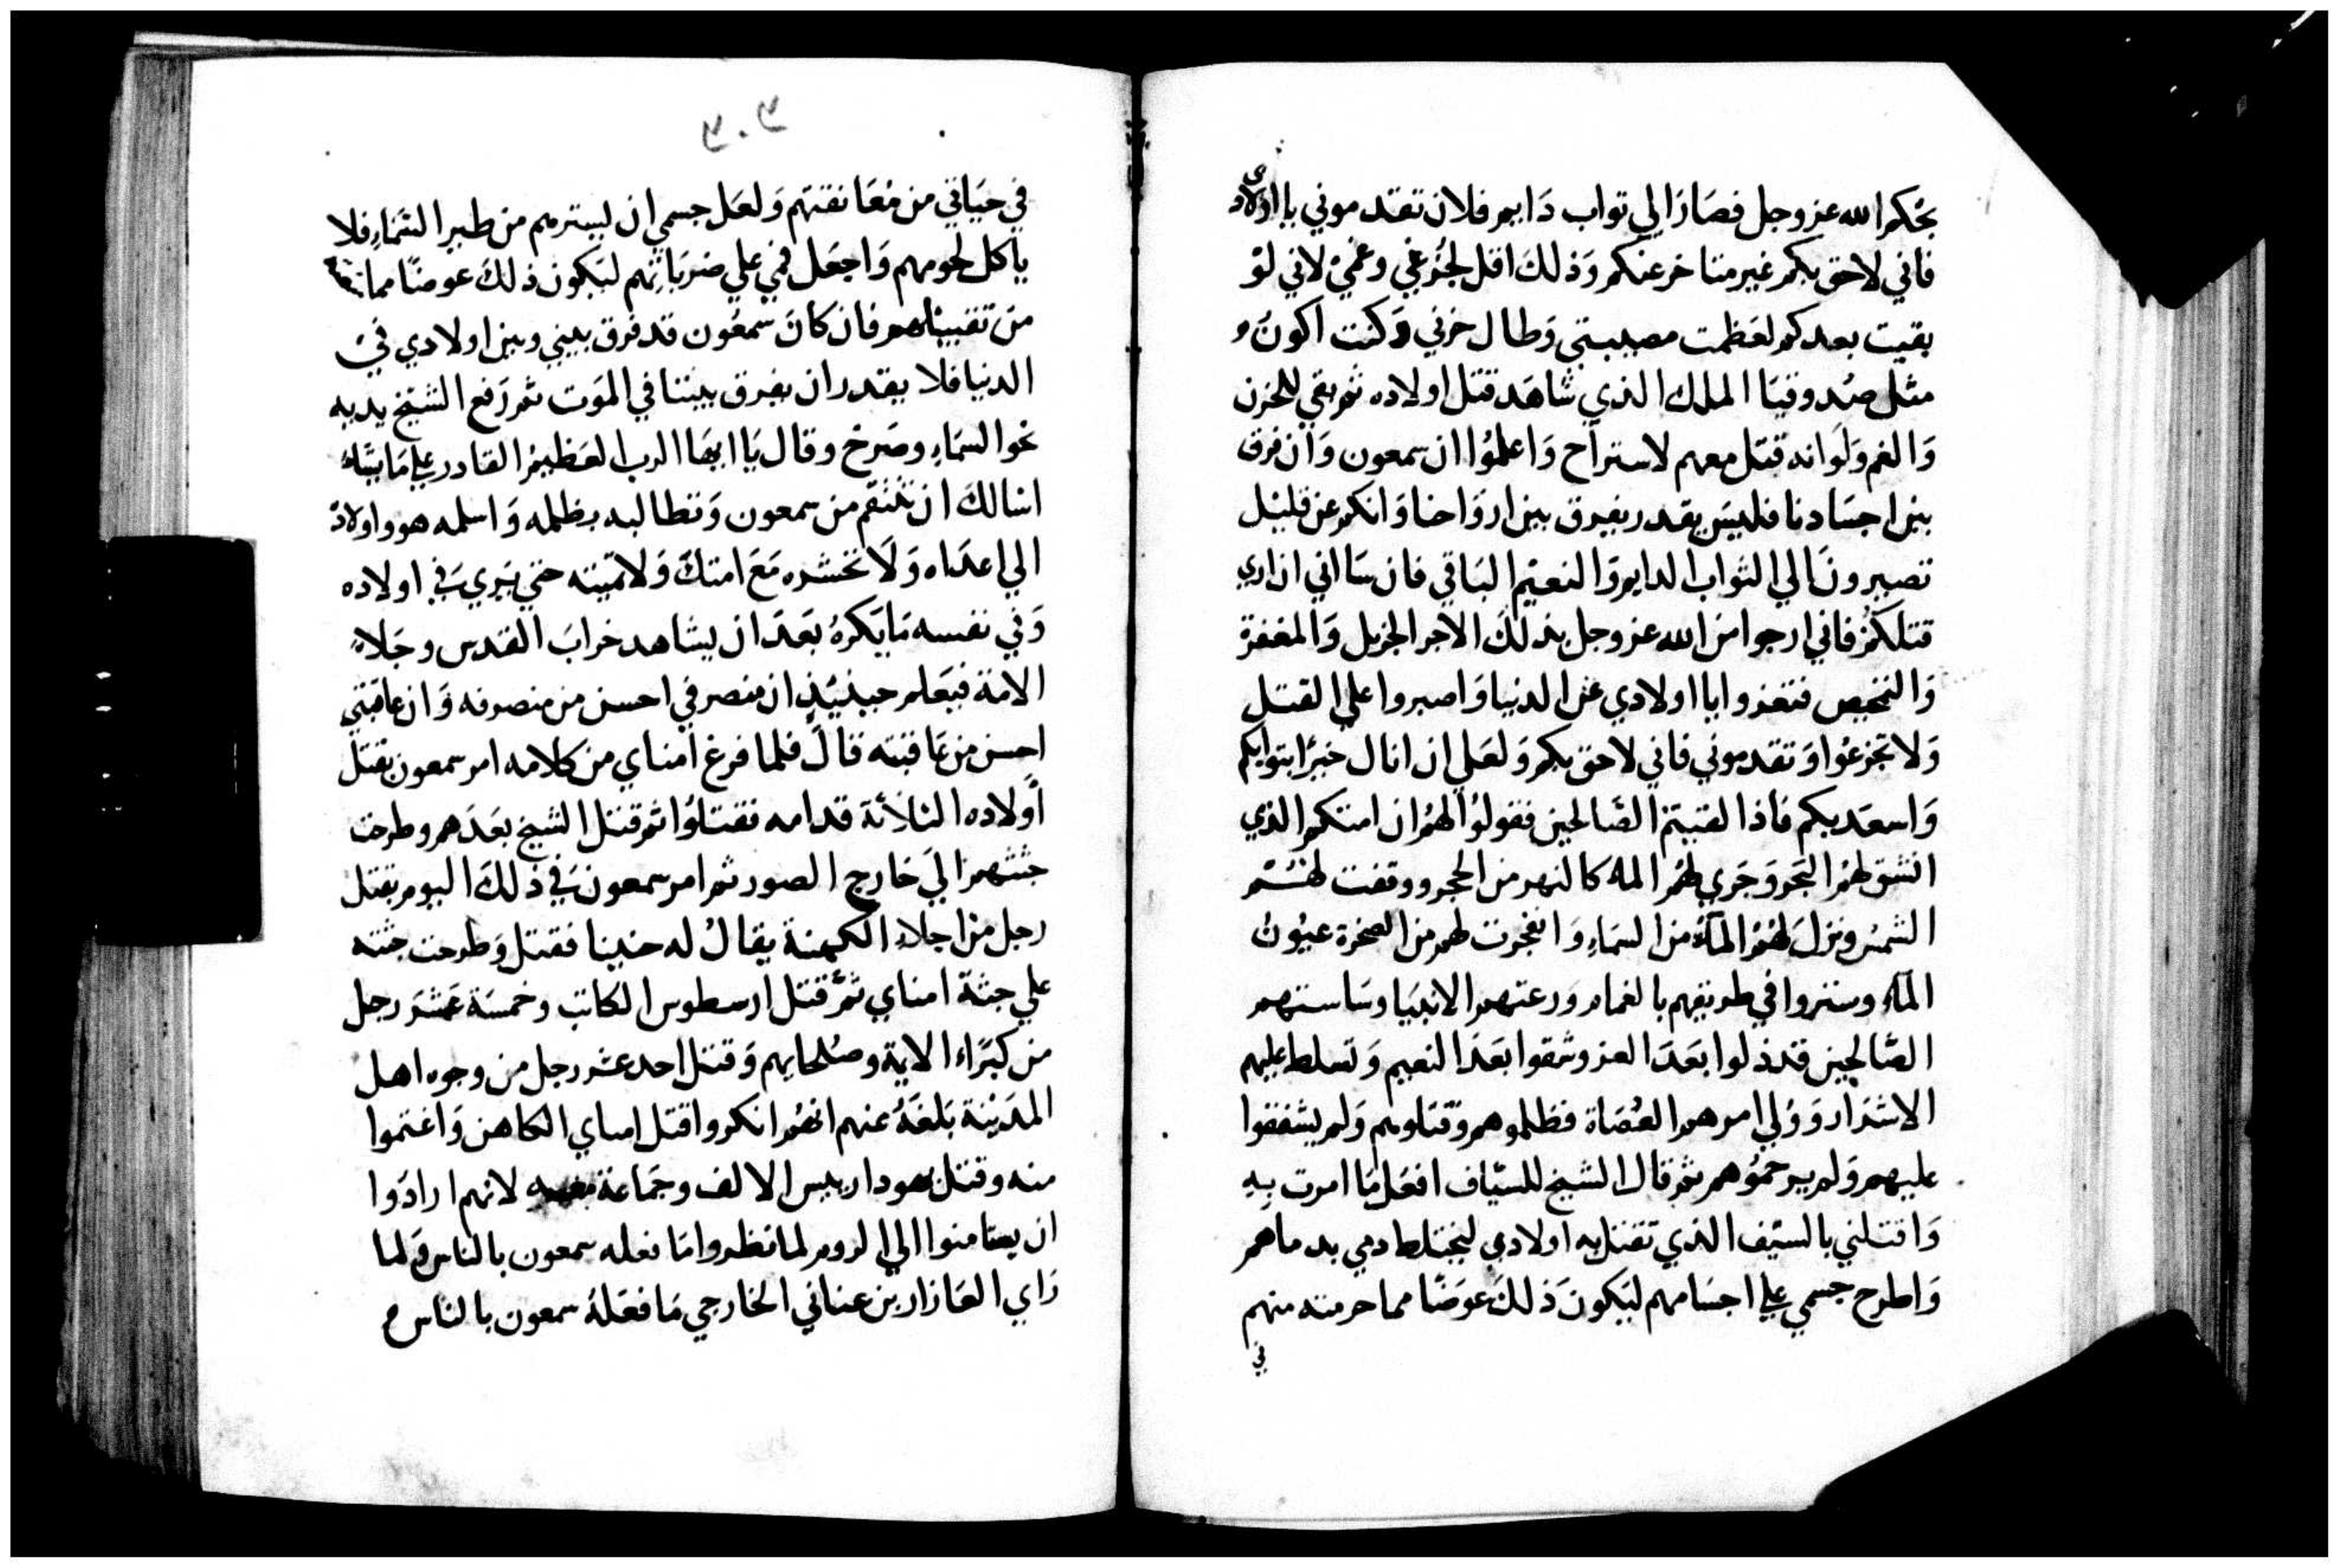 بحكم الله عز وجل فصارا لي تواب دايم فلان تقدموني يا اولادي
فاني لاحق بكم غير متاخر عنكم وَذلك اقل لجزعي وغمي لاني لو
بقيت بعدكم لعظمت مصيبتي وَطال حزني وَكنت اكون
مثل صدوقيا الملك الذي شاهَد قتل اولاده ثم بقي للحزن
وَالغم وَلَو انه قتل معهم لاسترآح وَاعلموا ان سمعون وَان فرق
بين اجسَادنا فليسَ يقدر يفرق بين اروَاحنا وَانكم عن قليل
تصيرونَ الي الثواب الدايم وَالنعيم البَاقي فان سَااني ان اري
قتلكم فاني ارجوا من الله عز وجل بذلكَ الاجر الجزيل وَالمغفرة
وَالتمحيص فتعزوا يا اولادي عن الدنيا وَاصبروا علي القتل
وَلا تجزعوا وَتقدموني فاني لاحق بكم وَلعَلي ان انال خيرًا بتوابكم
وَاسعَد بكم فاذا لقيتم الصَالحين فقولوُا لهم ان امتكم الذي
انشق لهم البَحر وَجَري لهم المآء كالنهر من الحجر ووقفت لهم
الشمس ونزلَ لهم المآء من السمَاءِ وَانفجرت لهم من الصخرة عيُونُ
المآء وستروا في طريقهم بالغمام وَرعتهم الانبيَا وسَاستهم
الصَالحين قد ذلوا بَعدَ العز وشقوا بَعدَ النعيم وَتسلط عليهم
الاشرَار وَوُلي امرهم العُصَاة فظلموهم وَقتلوهم وَلم يشفقوا
عليهم وَلم يرحموُهم ثم قال الشيخ للسيَّاف افعَل مَا امرت بِهِ
وَاقتلني بالسيف الذي تقتل به اولادي ليختلط دمي بدماهم
وَاطرح جسمي علي اجسَامهم ليَكونَ ذَلكَ عوَضًا مما حرمته منهم
في
٢٠٢
في حيَاتي من مُعَانقتهم وَلعَل جسمي ان يسترهم من طير السَمَاءِ فلا
ياكل لحومهم وَاجعَل فمي علي ضربَاتهم ليَكون ذلكَ عوضًا مما
من تقبيلهم فان كانَ سمعُون قد فرق بيني وبين اولادي في
الدنيا فلا يقدر ان يفرق بيننا في الموَت ثم رَفع الشيخ يديه
نحو السمَاءِ وصَرخ وقال يَا ايهَا الرب العَظيم القادر علي مَا يشَاء
اسَالكَ ان تنتقم من سمعون وَتطالبه بظلمه وَاسلمه هو واولادَه
الي اعدَاه وَلَا تحشره مَعَ امتكَ وَلا تميته حتي يَري في اولاده
وَفي نفسه مَا يَكرهُ بَعدَ ان يشاهد خرابَ القدس وجَلاءِ
الامة فيَعلم حينيُذٍ ان منصرفي احسن من منصرفه وَان عاقبتي
احسن من عَاقبته قالَ فلما فرغ امناي من كلامه امر سمعون بقتل
اولاده الثلاثة قدامه فقتلوُا ثم قتل الشيخ بعَدهم وطرحت
جثثهم اليَ خارج الصور ثم امر سمعون في ذلكَ اليوم بقتل
رجل من اجلاءِ الكهنة يقالُ له حنينا فقتل وَطرحت جثته
علي جثة امناي ثم قتل ارسطوس الكاتب وخمسَة عَشَر رجل
من كبَراء الامة وصُلحايهم وَقتل احد عشر رجل من وجوه اهل
المدَينة بَلغَهُ عنهم انهم انكروا قتل امناي الكاهن وَاغتموا
منه وقتل يهودا رييس الالف وجمَاعة معه لانهم ارادَوا
ان يستامنوا الي الروم لما نظروا مَا فعله سمعون بالناس وَلما
رَاي العَازار بن عناني الخارجي مَا فعَلهُ سمعون بالناس